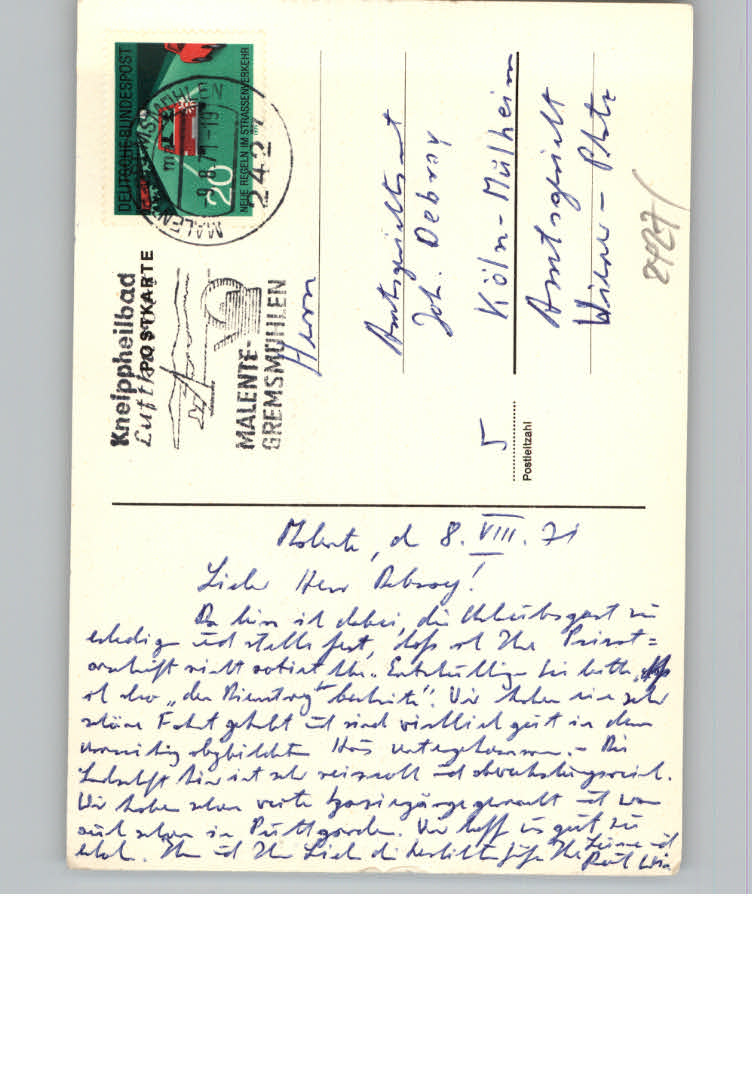 DEUTSCHE BUNDESPOST
20
NEUE REGELN IM STRASSENVERKEHR
MALENTE-GREMSMÜHLEN
-9.8.71-19
2427
Kneippheilbad
Luftkurort
POSTKARTE
MALENTE-
GREMSMÜHLEN
Herrn
Amtsgerichtsrat
Joh. Debroy
5 Köln-Mülheim
Postleitzahl
Amtsgericht
Wiener-Platz
2427/
Malente, d 8. VIII. 71
Lieber Herr Debroy!
Da bin ich dabei, die Urlaubspost zu
erledigen und stelle fest, daß ich Ihre Privat=
anschrift nicht notiert habe. Entschuldigen Sie bitte, daß
ich also „den Dienstweg beschreite". Wir haben eine sehr
schöne Fahrt gehabt und sind wirklich gut in dem
umseitig abgebildeten Haus untergekommen. – Die
Landschaft hier ist sehr reizvoll und abwechslungsreich.
Wir haben schon weite Spaziergänge gemacht und waren
auch schon in Puttgarden. Wir hoffen uns gut zu
erholen. Ihnen und Ihren Lieben die herzlichsten Grüße Ihre
und